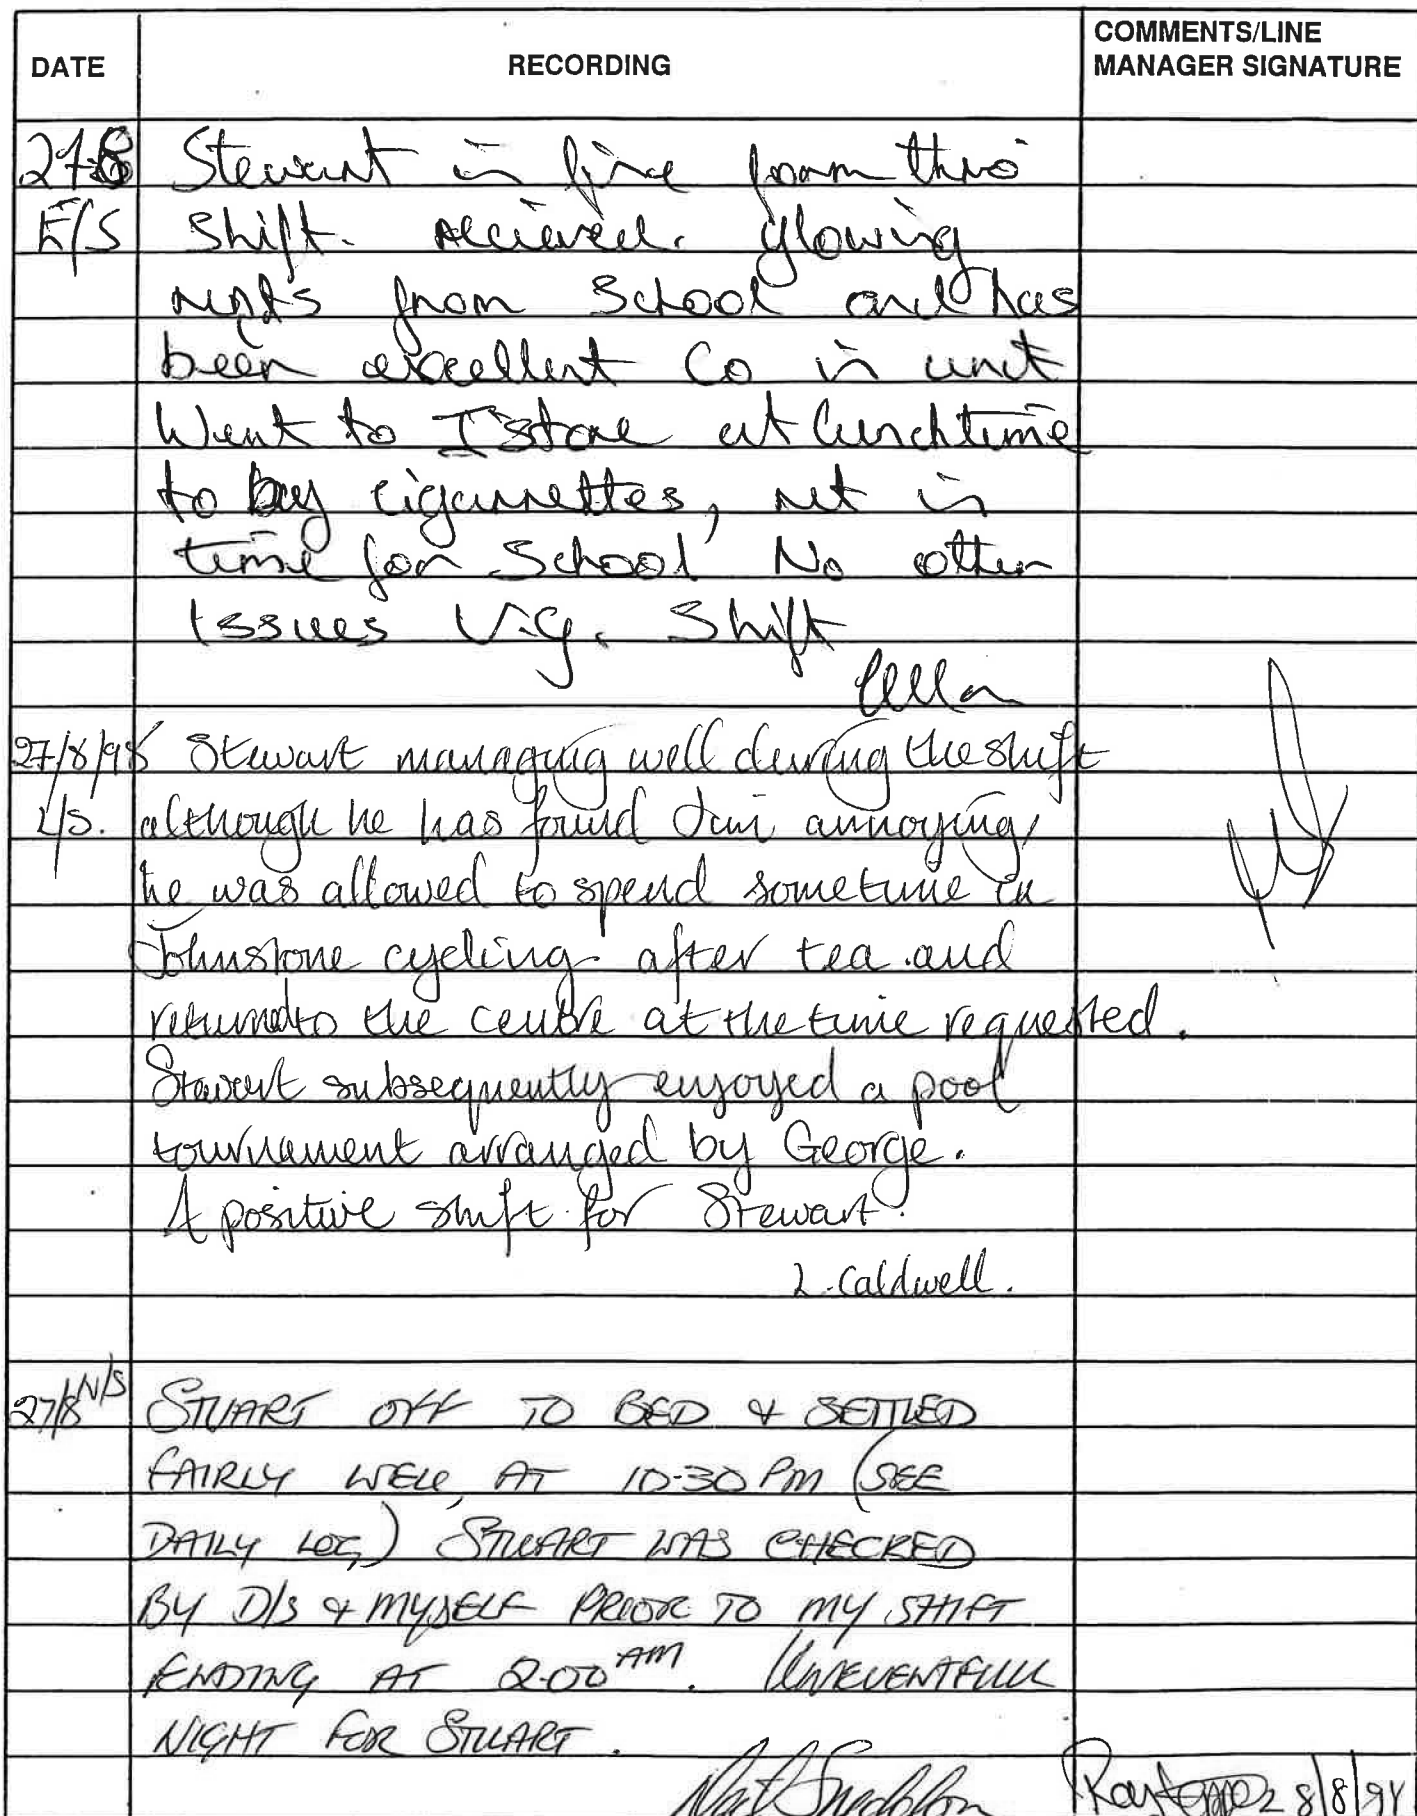 DATE
RECORDING
COMMENTS/LINE
MANAGER SIGNATURE
27.8 Stewart in fine form this
E/S shift. recieved. glowing
repts from School and has
been excellent Co in unit
Went to Istore at lunchtime
to buy cigarrettes, ret in
time for School No other
Issues V.G. Shift
27/8/98 Stewart managing well during the shift
L/S. although he has found Iain annoying,
he was allowed to spend sometime in
Johnstone cycling after tea and
returned to the centre at the time requested.
Stewart subsequently enjoyed a pool
tournament arranged by George.
A positive shift for Stewart.
L. Caldwell.
27/8 N/S STUART OFF TO BED & SETTLED
FAIRLY WELL AT 10-30 PM (SEE
DAILY LOG) STUART WAS CHECKED
BY D/S & MYSELF PRIOR TO MY SHIFT
ENDING AT 2.00 AM. UNEVENTFULL
NIGHT FOR STUART.